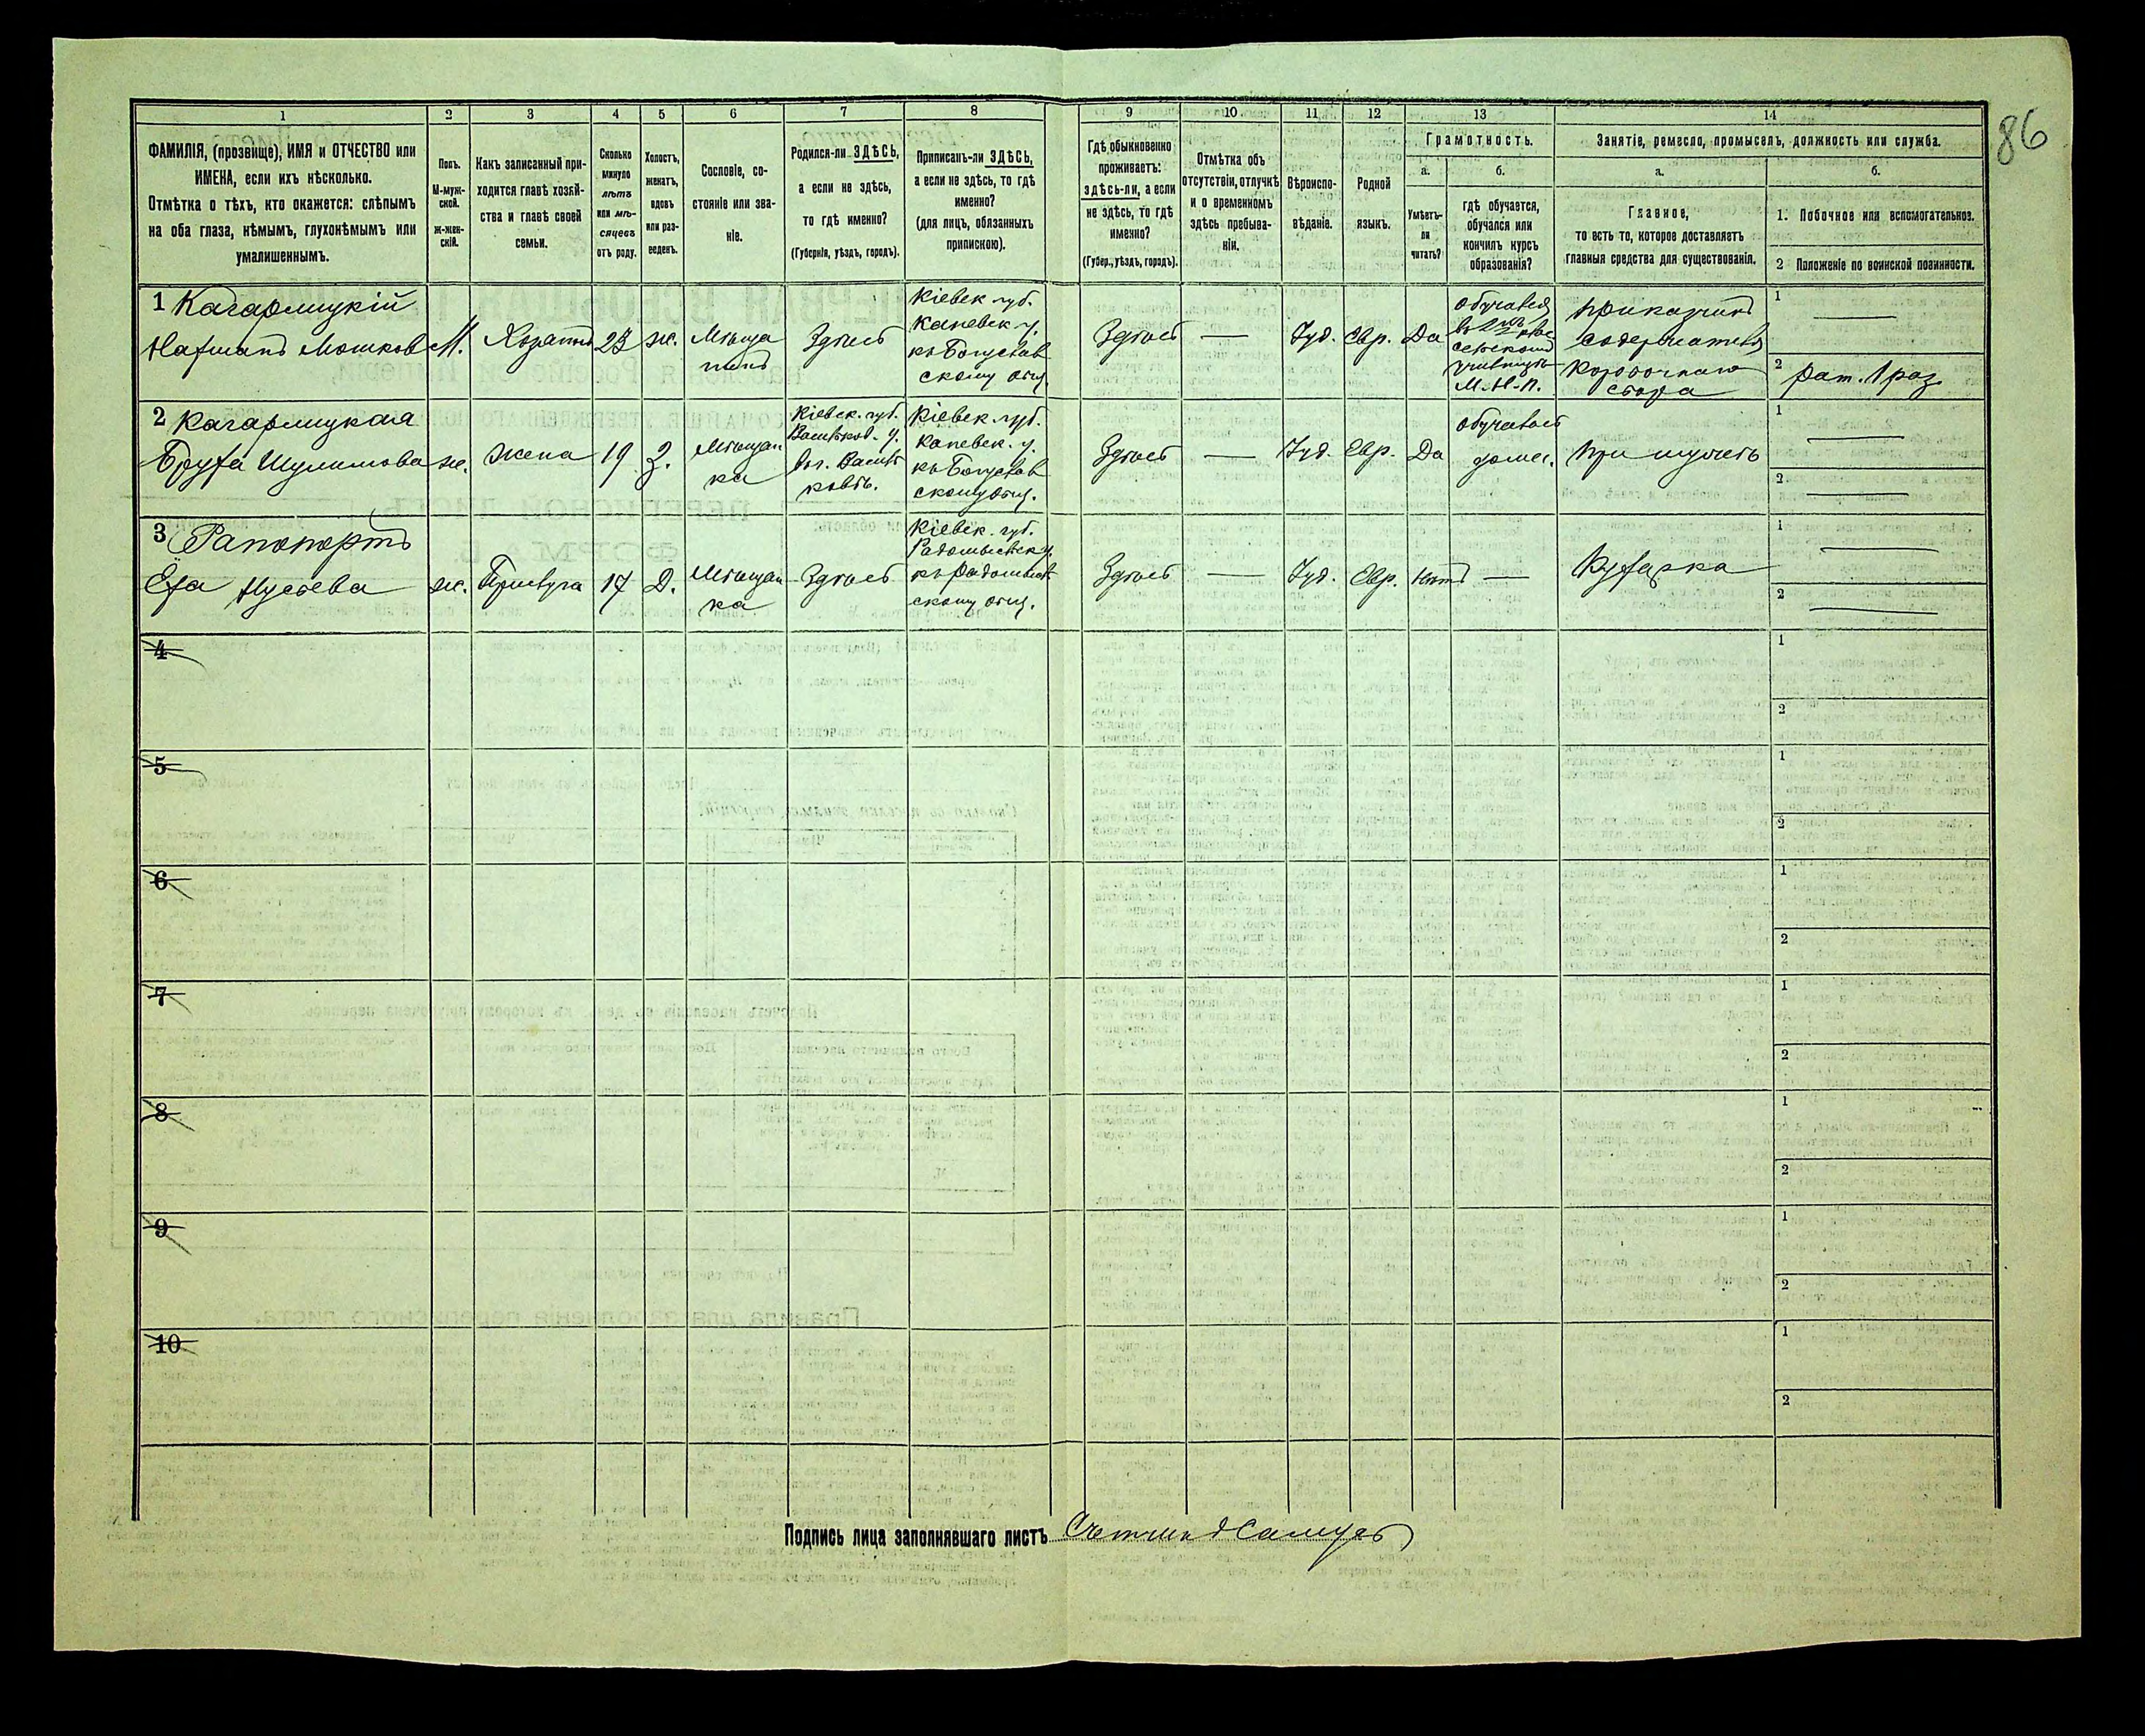 86
1 2 3 4 5 6 7 8 9 10 11 12 13 14
ФАМИЛІЯ, (прозвище), ИМЯ и ОТЧЕСТВО или
ИМЕНА, если ихъ нѣсколько.
Отмѣтка о тѣхъ, кто окажется: слѣпымъ
на оба глаза, нѣмымъ, глухонѣмымъ или
умалишеннымъ.
Полъ.
М-муж-
ской.
ж-жен-
скій.
Какъ записанный при-
ходится главѣ хозяй-
ства и главѣ своей
семьи.
Сколько
минуло
лѣтъ
или мѣ-
сяцевъ
отъ роду.
Холостъ,
женатъ,
вдовъ
или раз-
веденъ.
Сословіе, со-
стояніе или зва-
ніе.
Родился-ли ЗДѢСЬ,
а если не здѣсь,
то гдѣ именно?
(Губернія, уѣздъ, городъ).
Приписанъ-ли ЗДѢСЬ,
а если не здѣсь, то гдѣ
именно?
(для лицъ, обязанныхъ
припискою).
Гдѣ обыкновенно
проживаетъ:
здѣсь-ли, а если
не здѣсь, то гдѣ
именно?
(Губер., уѣздъ, городъ).
Отмѣтка объ
отсутствіи, отлучкѣ
и о временномъ
здѣсь пребыва-
ніи.
Вѣроиспо-
вѣданіе.
Родной
языкъ.
Грамотность.
а.
Умѣетъ-
ли
читать?
б.
гдѣ обучается,
обучался или
кончилъ курсъ
образованія?
Занятіе, ремесло, промыселъ, должность или служба.
а.
Главное,
то есть то, которое доставляетъ
главныя средства для существованія.
б.
1. Побочное или вспомогательное.
2 Положеніе по воинской повинности.
1 Кагарлицкій
Нафтанъ Мошковъ
М.
Хозяинъ
23
ж.
Мѣща
нинъ
Здѣсь
Кіевск. губ.
Каневск. у.
къ Богуслав
скому общ.
Здѣсь
—
Іуд.
Евр.
Да
обучался
въ 2 кл.
сельскомъ
училищѣ
М. Н. П.
Приказчикъ
содержателя
коробочнаго
сбора
1 —
2 рат. 1 раз.
2 Кагарлицкая
Бруха Шулимова
ж.
жена
19
З.
Мѣщан
ка
Кіевск. губ.
Васильков. у.
въ г. Василь
ковѣ.
Кіевск. губ.
Каневск. у.
къ Богуслав
скому общ.
Здѣсь
—
Іуд.
Евр.
Да
обучалась
дома.
При мужѣ
1 —
2 —
3 Рапопортъ
Ёха Нусьева
ж.
Прислуга
17
Д.
Мѣщан
ка
Здѣсь
Кіевск. губ.
Радомысльск. у.
къ Радомысль
скому общ.
Здѣсь
—
Іуд.
Евр.
нѣтъ
—
Кухарка
1 —
2 —
4
1
2
5
1
2
6
1
2
7
1
2
8
1
2
9
1
2
10
1
2
Подпись лица заполнявшаго листъ Счетчикъ